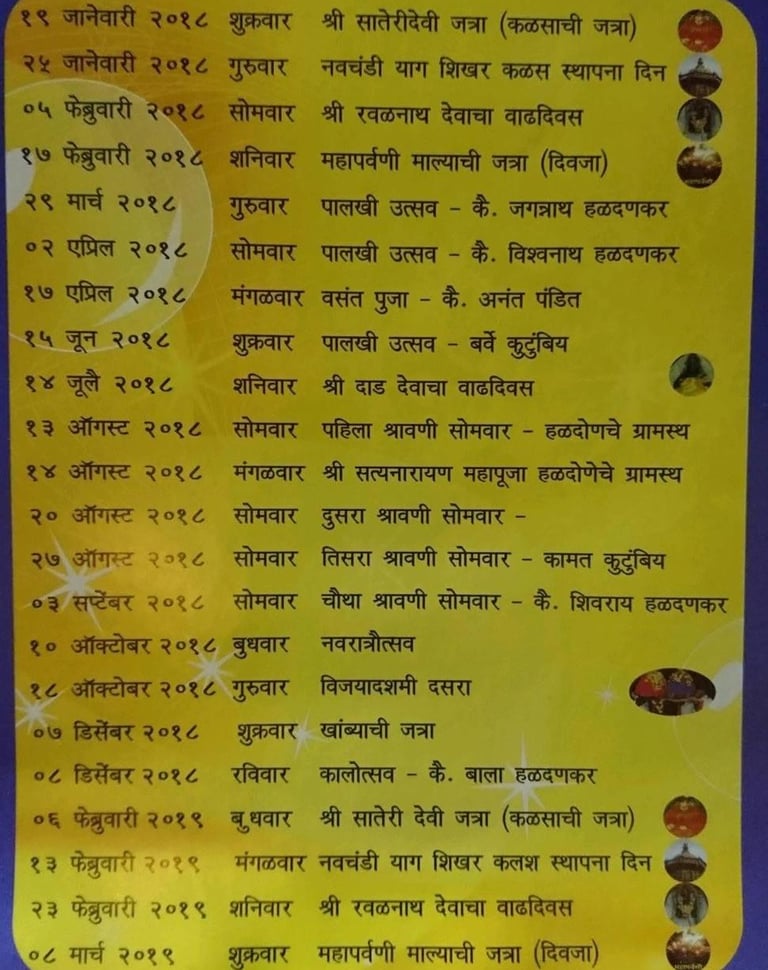 १९ जानेवारी २०१८ शुक्रवार श्री सातेरीदेवी जत्रा (कळसाची जत्रा)
२५ जानेवारी २०१८ गुरुवार नवचंडी याग शिखर कळस स्थापना दिन
०५ फेब्रुवारी २०१८ सोमवार श्री रवळनाथ देवाचा वाढदिवस
१७ फेब्रुवारी २०१८ शनिवार महापर्वणी माल्याची जत्रा (दिवजा)
२९ मार्च २०१८ गुरुवार पालखी उत्सव - कै. जगन्नाथ हळदणकर
०२ एप्रिल २०१८ सोमवार पालखी उत्सव - कै. विश्वनाथ हळदणकर
१७ एप्रिल २०१८ मंगळवार वसंत पुजा - कै. अनंत पंडित
१५ जून २०१८ शुक्रवार पालखी उत्सव - बर्वे कुटुंबिय
१४ जूलै २०१८ शनिवार श्री दाड देवाचा वाढदिवस
१३ ऑगस्ट २०१८ सोमवार पहिला श्रावणी सोमवार - हळदोणचे ग्रामस्थ
१४ ऑगस्ट २०१८ मंगळवार श्री सत्यनारायण महापूजा हळदोणेचे ग्रामस्थ
२० ऑगस्ट २०१८ सोमवार दुसरा श्रावणी सोमवार -
२७ ऑगस्ट २०१८ सोमवार तिसरा श्रावणी सोमवार - कामत कुटुंबिय
०३ सप्टेंबर २०१८ सोमवार चौथा श्रावणी सोमवार - कै. शिवराय हळदणकर
१० ऑक्टोबर २०१८ बुधवार नवरात्रौत्सव
१८ ऑक्टोबर २०१८ गुरुवार विजयादशमी दसरा
०७ डिसेंबर २०१८ शुक्रवार खांब्याची जत्रा
०८ डिसेंबर २०१८ रविवार कालोत्सव - कै. बाला हळदणकर
०६ फेब्रुवारी २०१९ बुधवार श्री सातेरी देवी जत्रा (कळसाची जत्रा)
१३ फेब्रुवारी २०१९ मंगळवार नवचंडी याग शिखर कलश स्थापना दिन
२३ फेब्रुवारी २०१९ शनिवार श्री रवळनाथ देवाचा वाढदिवस
०८ मार्च २०१९ शुक्रवार महापर्वणी माल्याची जत्रा (दिवजा)